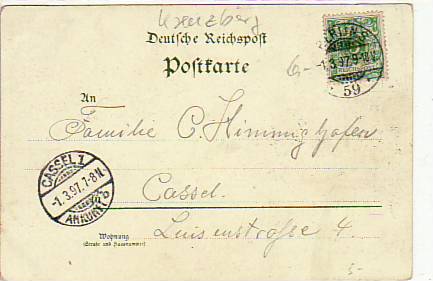 Kreuzberg
Deutsche Reichspost
Postkarte
BERLIN S.
-1.3.97.9-10V.
59
6-
An
Familie C. Himmighofen
CASSEL 1
-1.3.97.7-8N.
ANKUNFT
Cassel.
Luisenstraße 4.
Wohnung
(Straße und Hausnummer)
5-